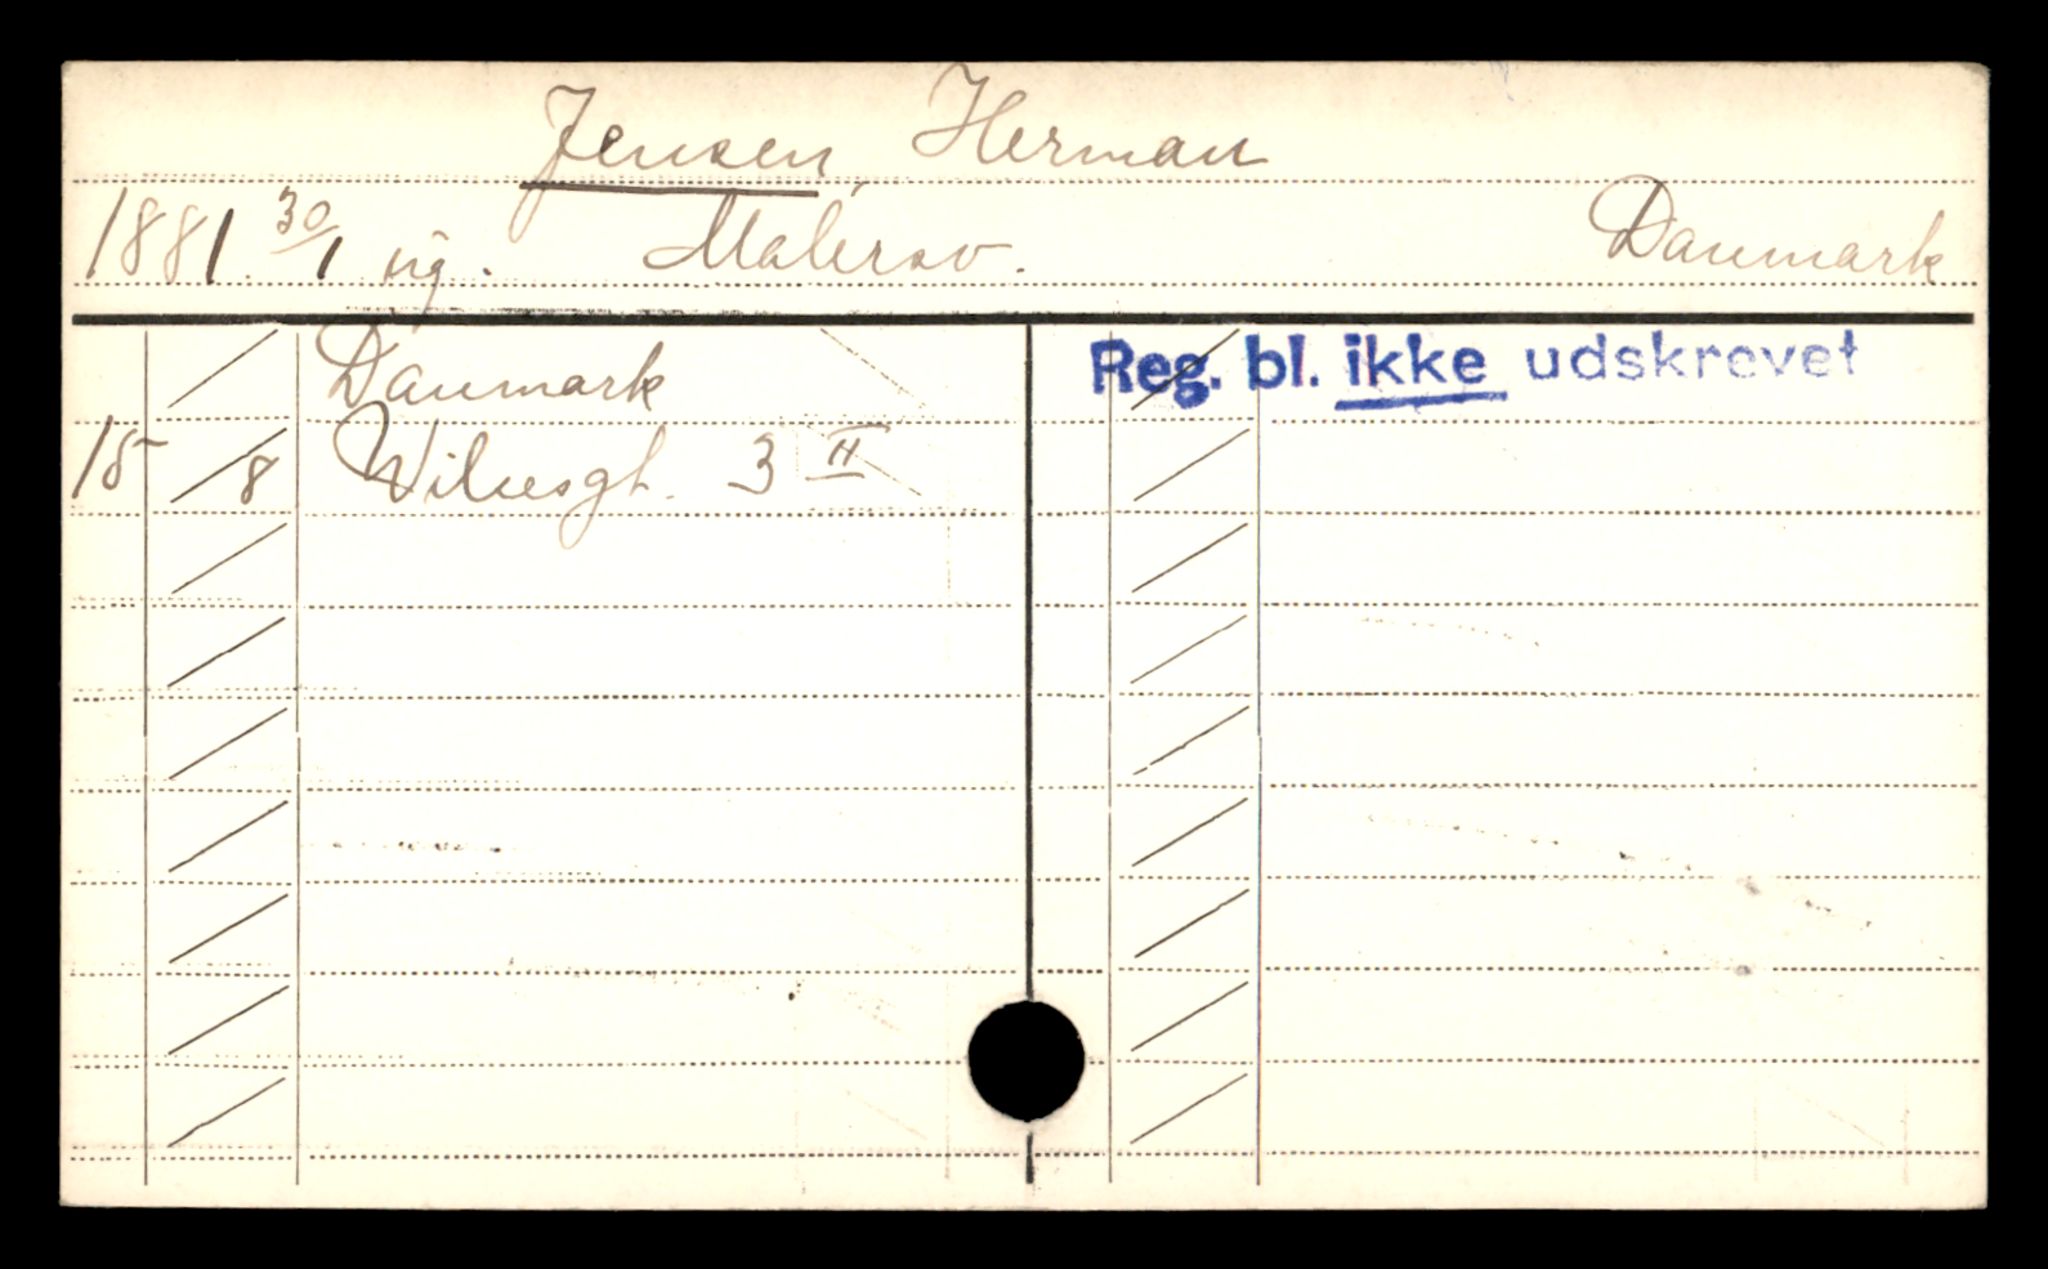 Jensen, Herman
1881 30/1 ug. Malersv. Danmark
Danmark
15 / 8 Wilsesgt. 3 II
Reg. bl. ikke udskrevet